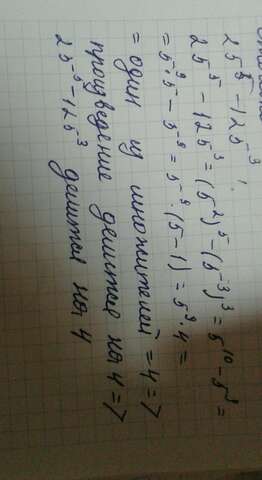 25⁵ - 125⁻³
25⁵ - 125³ = (5²)⁵ - (5⁻³)³ = 5¹⁰ - 5⁹ =
= 5⁹·5 - 5⁹ = 5⁻⁹·(5-1) = 5⁹·4 =
= один из множителей = 4 =>
произведение делится на 4 =>
25⁻⁵ - 125⁻³ делится на 4